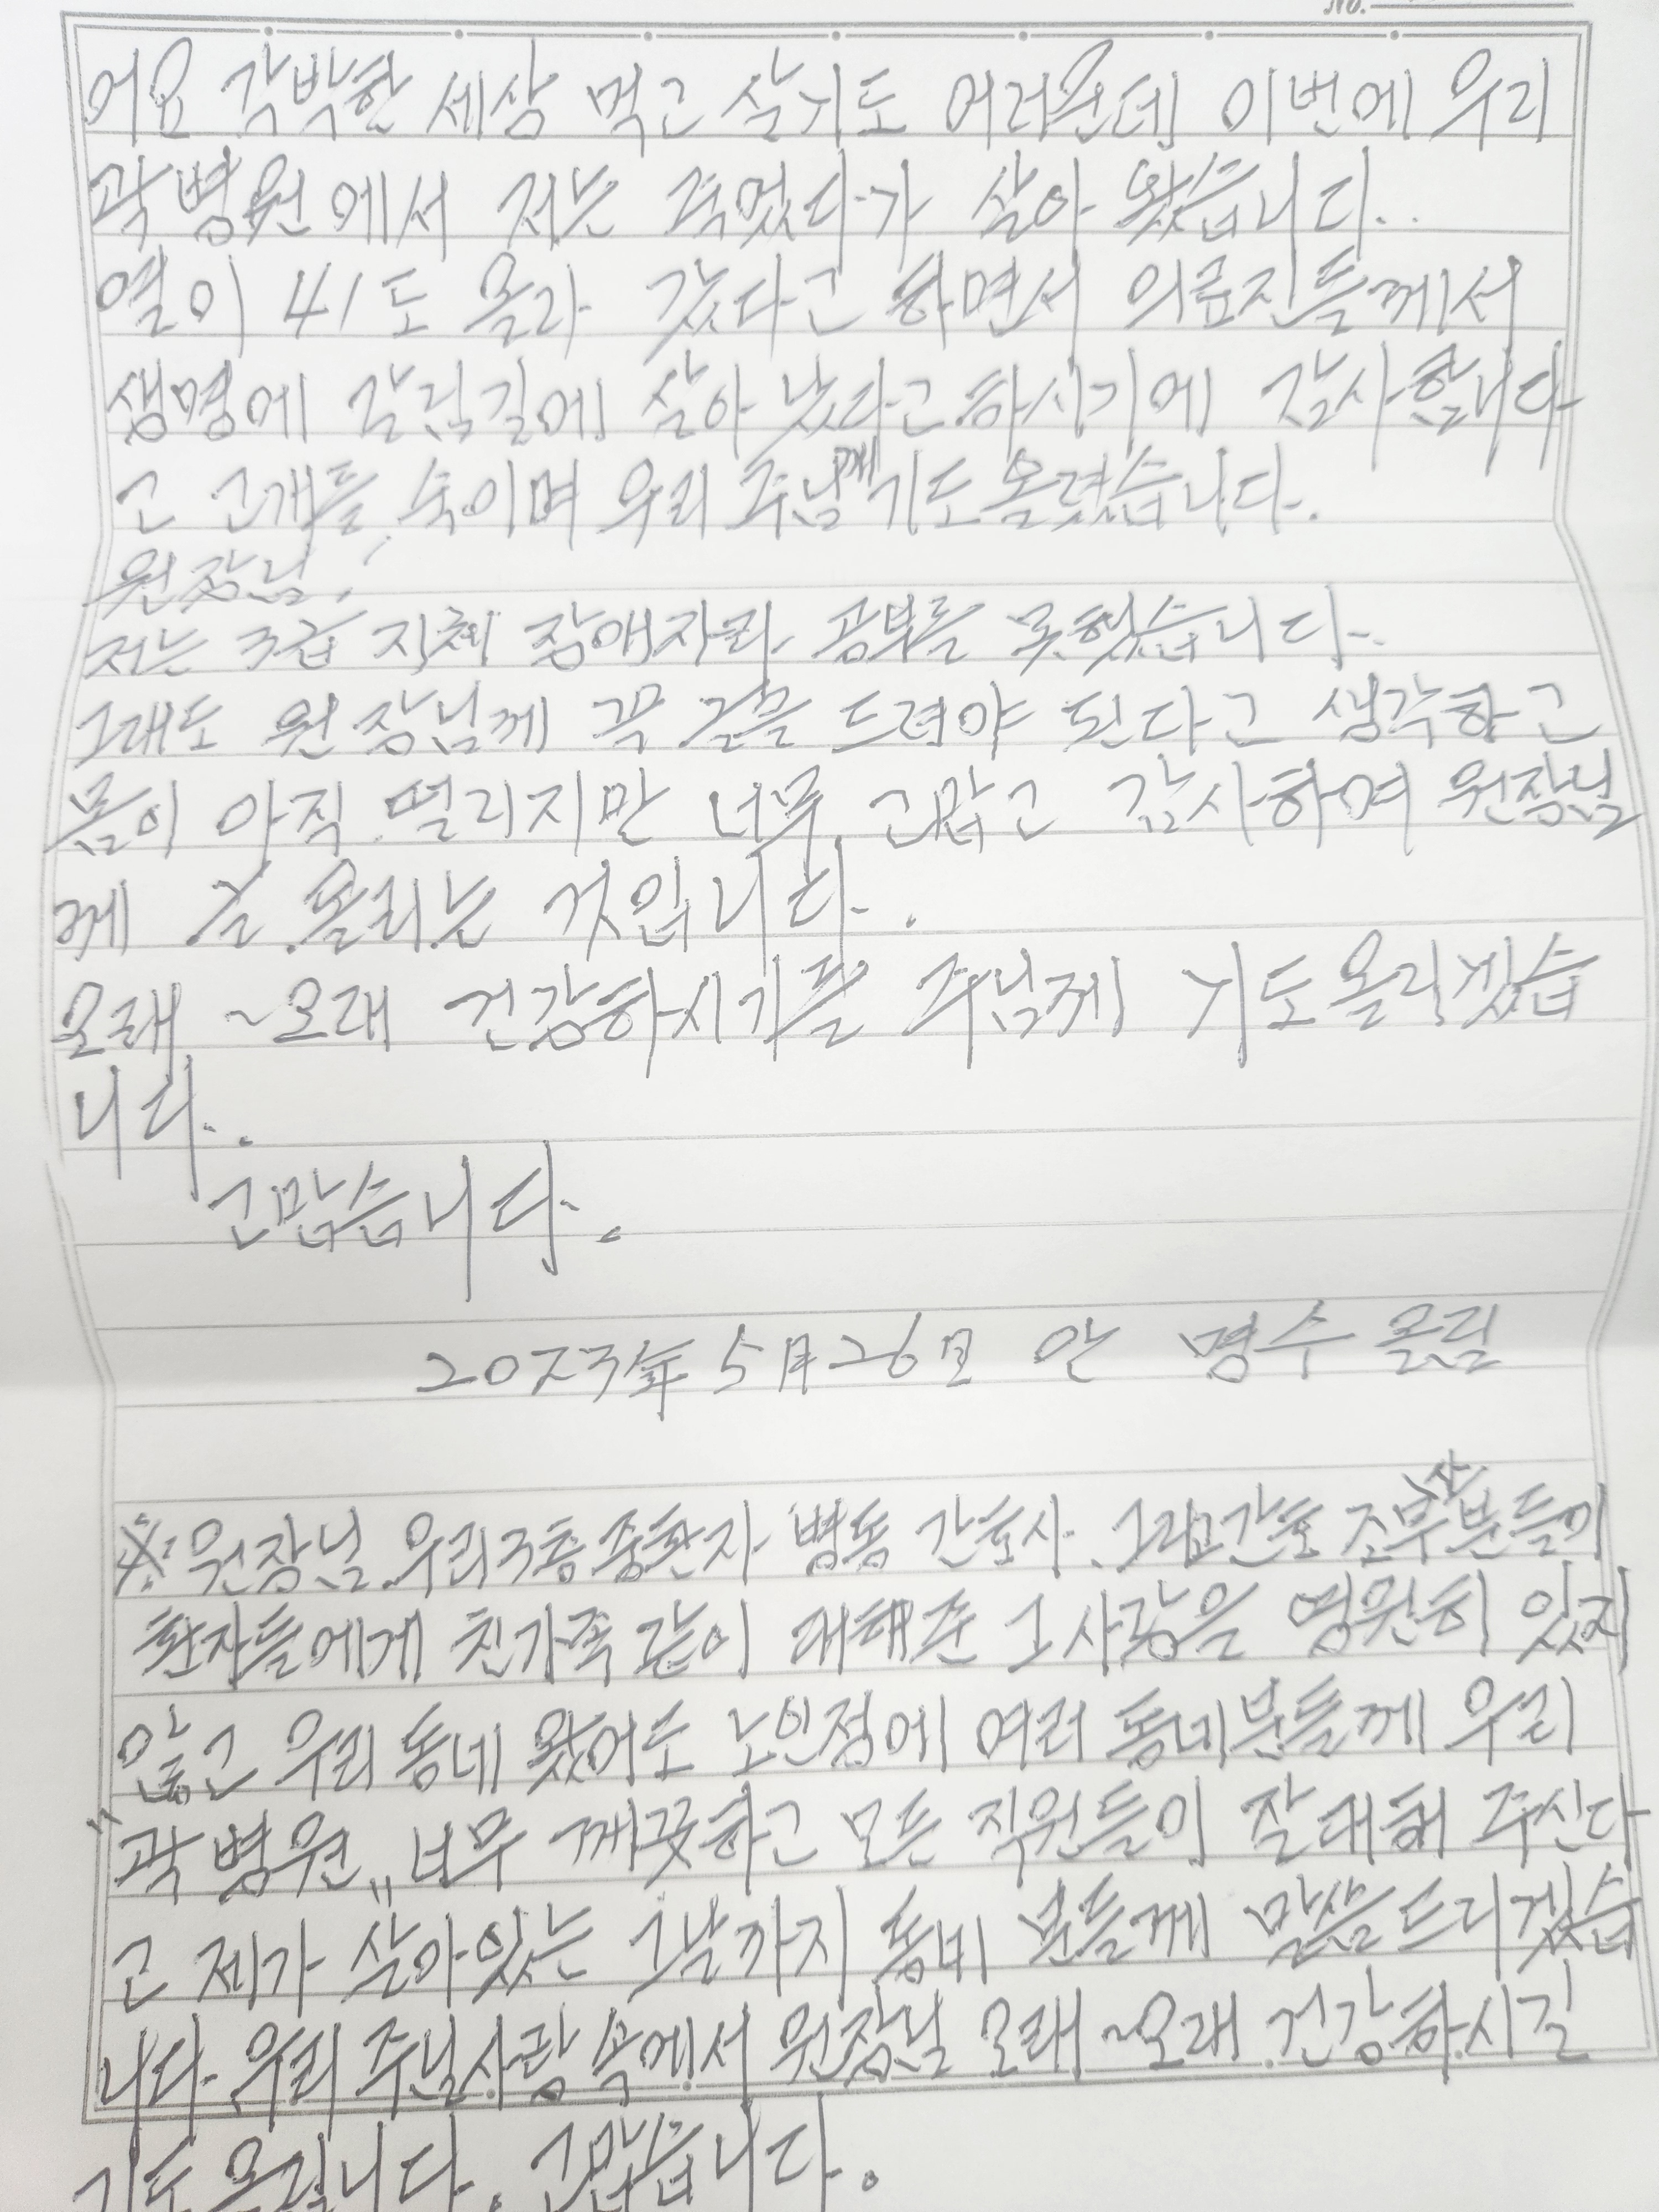 No.
어요 각박한 세상 먹고 살기도 어려운데 이번에 우리
곽병원에서 저는 죽었다가 살아 왔습니다..
열이 41도 올라 갔다고 하면서 의료진들께서
생명에 갈림길에 살아 났다고 하시기에 감사합니다
고 고개를 숙이며 우리 주님께 기도올렸습니다.
원장님!
저는 3급 지체 장애자라 공부를 못했습니다.
그래도 원장님께 꼭 글을 드려야 된다고 생각하고
몸이 아직 떨리지만 너무 고맙고 감사하여 원장님
께 글 올리는 것입니다.
오래~오래 건강하시기를 주님께 기도올리겠습
니다.
고맙습니다.
2023年 5月 26日 안 명수 올림
※ 원장님 우리3층 중환자 병동 간호사. 그리고 간호 조무사분들이
환자들에게 친가족 같이 대해준 그 사랑을 영원히 있지
않고 우리 동네 왔어도 노인정에 여러 동네분들께 우리
"곽병원" 너무 깨끗하고 모든 직원들이 잘 대해 주신다
고 제가 살아있는 그날까지 동네 분들께 말씀드리겠습
니다. 우리 주님 사랑 속에서 원장님 오래~오래 건강하시길
기도 올립니다. 고맙습니다.